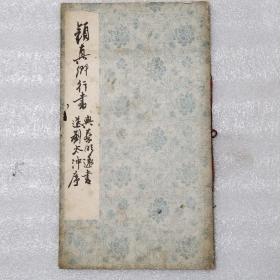 顏真卿行书
與蔡明遠書
送劉太冲序